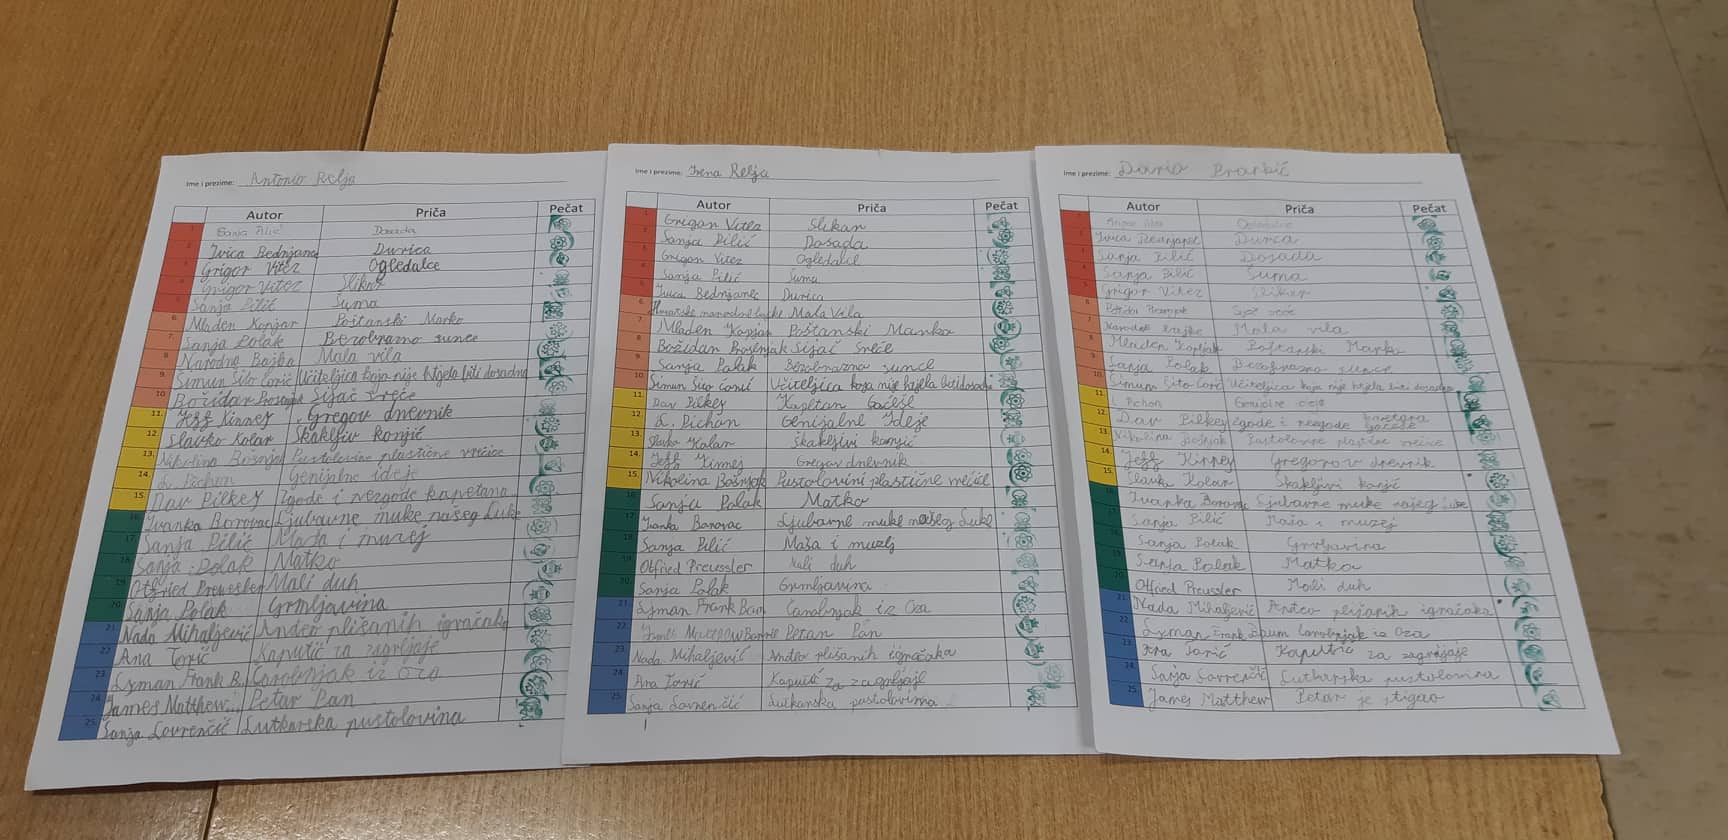 Ime i prezime: Antonio Relja
Autor Priča Pečat
1. Sanja Pilić Dosada
2. Ivica Bednjanec Durica
3. Grigor Vitez Ogledalce
4. Grigor Vitez
5. Sanja Pilić Šuma
6. Mladen Kopjar Poštanski Marko
7. Sanja Polak Bezobrazno sunce
8. Narodna Bajka Mala vila
9. Šimun Šito Ćorić Učiteljica koja nije htjela biti dosadna
10. Božidar Prosenjak Sijač sreće
11. Jeff Kinney Gregov dnevnik
12. Slavko Kolar Škakljiv konjić
13. Nikolina Bošnjak Pustolovine plastične vrećice
14. L. Pichon Genijalne ideje
15. Dav Pilkey Zgode i nezgode kapetana
16. Ivanka Borovac Ljubavne muke našeg Luke
17. Sanja Pilić Maša i muzej
18. Sanja Polak Matko
19. Otfried Preussler Mali duh
20. Sanja Polak Grmljavina
21. Nada Mihaljević Anđeo plišanih igračaka
22. Ana Torić Kaputić za zagrljaje
23. Lyman Frank B. Čarobnjak iz Oza
24. James Matthew... Petar Pan
25. Sanja Lovrenčić Lutkarska pustolovina
Ime i prezime: Irena Relja
Autor Priča Pečat
1. Grigor Vitez Slikar
2. Sanja Pilić Dosada
3. Grigor Vitez
4. Sanja Pilić Šuma
5. Ivica Bednjanec Durica
6. Hrvatske narodne bajke Mala Vila
7. Mladen Kopjar Poštanski Marko
8. Božidar Prosenjak Sijač Sreće
9. Sanja Polak Bezobrazna sunce
10. Šimun Šito Ćorić Učiteljica koja nije htjela biti dosadna
11. Dav Pilkey Kapetan Gaćeša
12. L. Pichon Genijalne Ideje
13. Slavko Kolar Škakljivi konjić
14. Jeff Gregov dnevnik
15. Nikolina Bošnjak Pustolovini plastične vrećice
16. Sanja Polak Matko
17. Ivanka Borovac Ljubavne muke našeg Luke
18. Sanja Pilić Maša i muzej
19. Otfried Preussler Mali duh
20. Sanja Polak Grmljavina
21. Lyman Frank Bam Čarobnjak iz Oza
22. James Matthew Barrie Petar Pan
23. Nada Mihaljević Anđeo plišanih igračaka
24. Ana Torić Kaputić za zagrljaje
25. Sanja Lovrenčić Lutkarska pustolovina
Ime i prezime: Dario
Autor Priča Pečat
1.
2. Ivica Bednjanec Durica
3. Sanja Pilić Dosada
4. Sanja Pilić Šuma
5. Grigor Vitez Slikar
6.
7. Narodne bajke Mala vila
8. Mladen Kopjar Poštanski Marko
9. Sanja Polak Bezobrazno sunce
10. Šimun Šito Ćorić Učiteljica koja nije htjela biti dosadna
11. L. Pichon Genijalne
12. Dav Pilkey Zgode i nezgode kapetana gaćeše
13. Nikolina Bošnjak Pustolovine plastične vrećice
14. Jeff Kinney Gregorov dnevnik
15. Slavko Kolar Škakljivi konjić
16. Ivanka Borovac Ljubavne muke našeg Luke
17. Sanja Pilić Maša i muzej
18. Sanja Polak Grmljavina
19. Sanja Polak Matko
20. Otfried Preussler Mali duh
21. Nada Mihaljević Anđeo plišanih igračaka
22. Lyman Frank Baum Čarobnjak iz Oza
23. Ana Torić Kaputić za zagrljaje
24. Sanja Lovrenčić Lutkarska pustolovina
25. James Matthew Petar je stigao